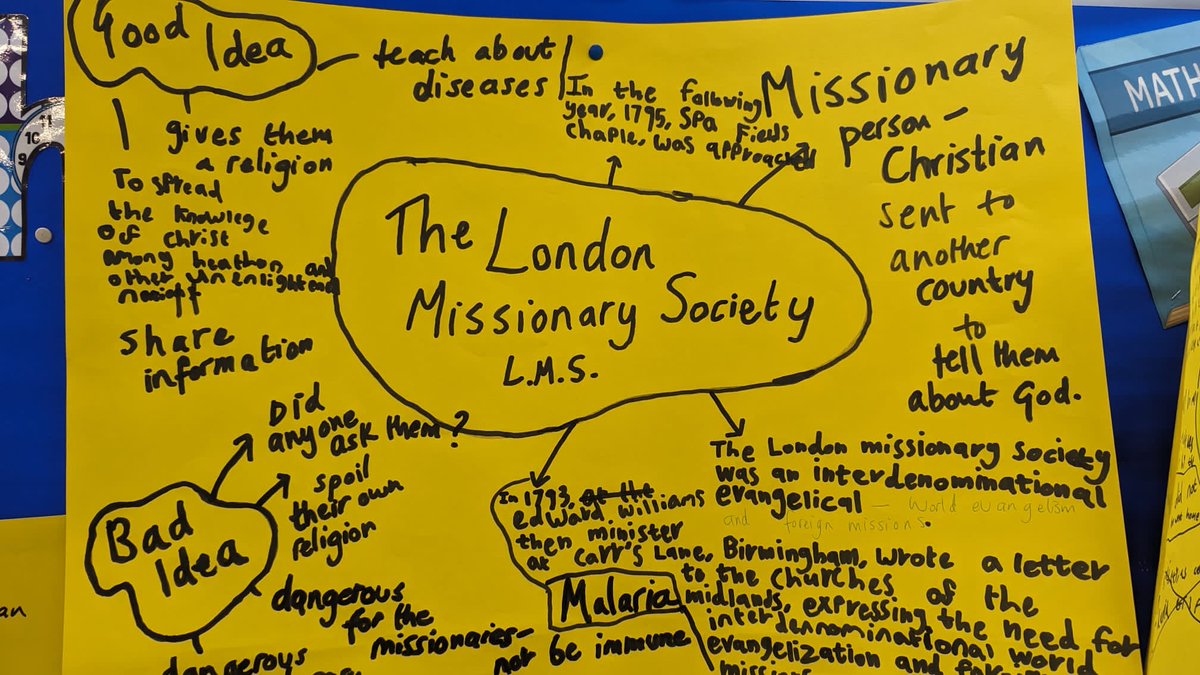 Good Idea
teach about
diseases
gives them
a religion
To spread
the knowlege
Of christ
among heathon and
other unenlightened
share
information
In the following
year, 1795, Spa Fields
chaple, was approached
Missionary
person -
Christian
sent to
another
country
to
tell them
about God.
The London
Missionary Society
L.M.S.
Did
anyone
ask them?
spoil
their own
religion
Bad
Idea
dangerous
for the
missionaries-
not be immune
dangerous
The London missionary society
was an interdenominational
evangelical - World evangelism
and foreign missions.
In 1793, at the
edward williams
then minister
at Carr's Lane, Birmingham, wrote a letter
to the churches of the
midlands, expressing the need for
interdenominational world
evangelization and
missions
Malaria
MATH
11
10
9
an